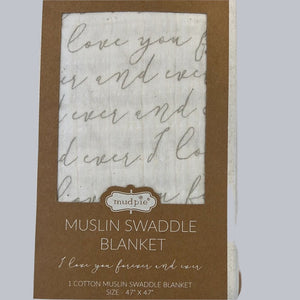 love you f
er and ever
ever and ev
d ever. I lo
love you fore
mudpie
MUSLIN SWADDLE
BLANKET
I love you forever and ever
1 COTTON MUSLIN SWADDLE BLANKET
SIZE 47" X 47"